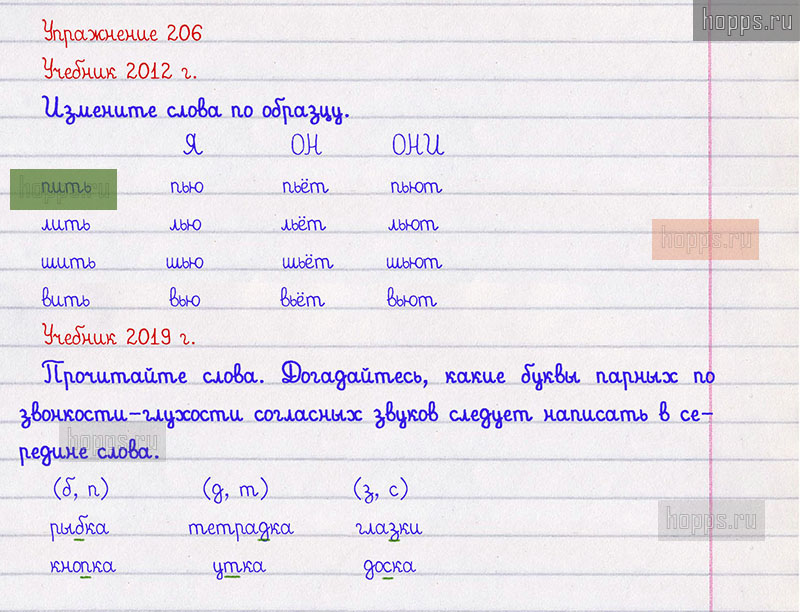 hopps.ru
Упражнение 206
Учебник 2012 г.
Измените слова по образцу.
Я ОН ОНИ
пить пью пьёт пьют
hopps.ru
лить лью льёт льют
hopps.ru
шить шью шьёт шьют
вить вью вьёт вьют
Учебник 2019 г.
Прочитайте слова. Догадайтесь, какие буквы парных по
звонкости-глухости согласных звуков следует написать в се-
hopps.ru
редине слова.
(б, п) (д, т) (з, с)
рыбка тетрадка глазки
hopps.ru
кнопка утка доска